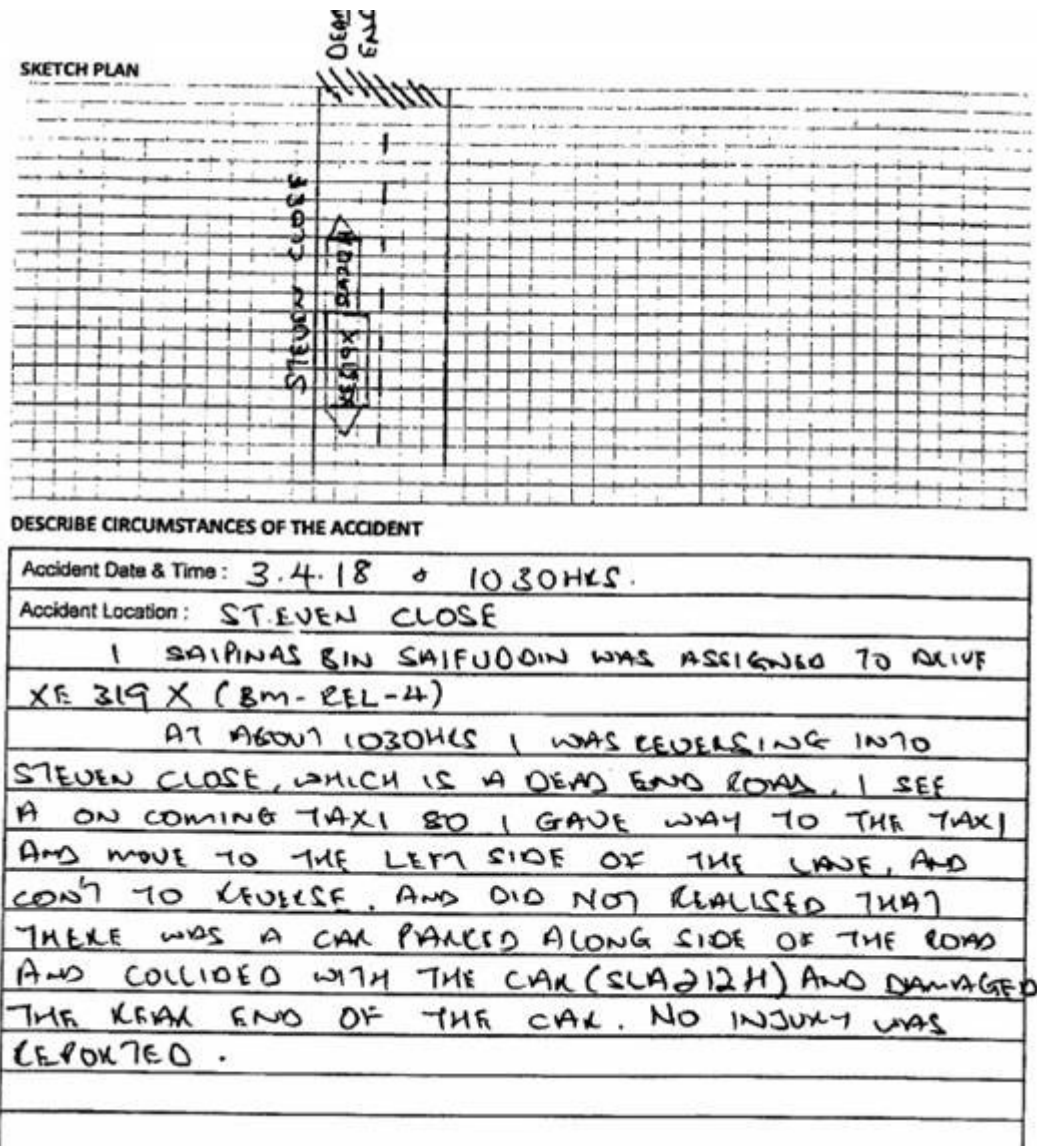 DEAD
END
SKETCH PLAN
STEVEN CLOSE
XE319X
DESCRIBE CIRCUMSTANCES OF THE ACCIDENT
Accident Date & Time : 3.4.18 1030HRS.
Accident Location : STEVEN CLOSE
I SAIPINAS BIN SAIFUDDIN WAS ASSIGNED TO DRIVE
XE 319 X (BM-REL-4)
AT ABOUT 1030HRS I WAS REVERSING INTO
STEVEN CLOSE, WHICH IS A DEAD END ROAD. I SEE
A ON COMING TAXI SO I GAVE WAY TO THE TAXI
AND MOVE TO THE LEFT SIDE OF THE LANE, AND
CON'T TO REVERSE. AND DID NOT REALISED THAT
THERE WAS A CAR PARKED ALONG SIDE OF THE ROAD
AND COLLIDED WITH THE CAR (SLA212H) AND DAMAGED
THE REAR END OF THE CAR. NO INJURY WAS
REPORTED.